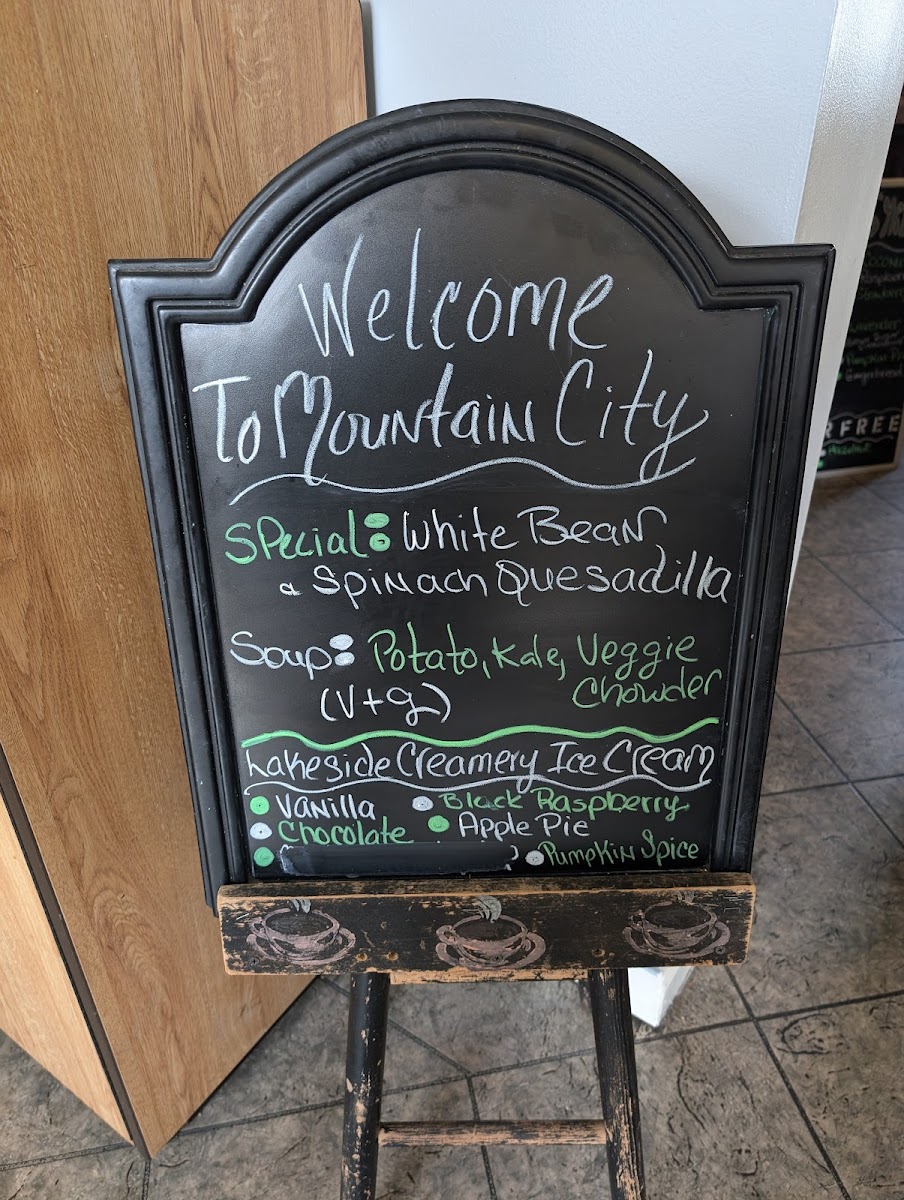 Welcome
To Mountain City
Special: White Bean
& Spinach Quesadilla
Soup: Potato, Kale, Veggie
Chowder
(V+g)
Lakeside Creamery Ice Cream
Vanilla
Chocolate
Black Raspberry
Apple Pie
Pumpkin Spice
FREE